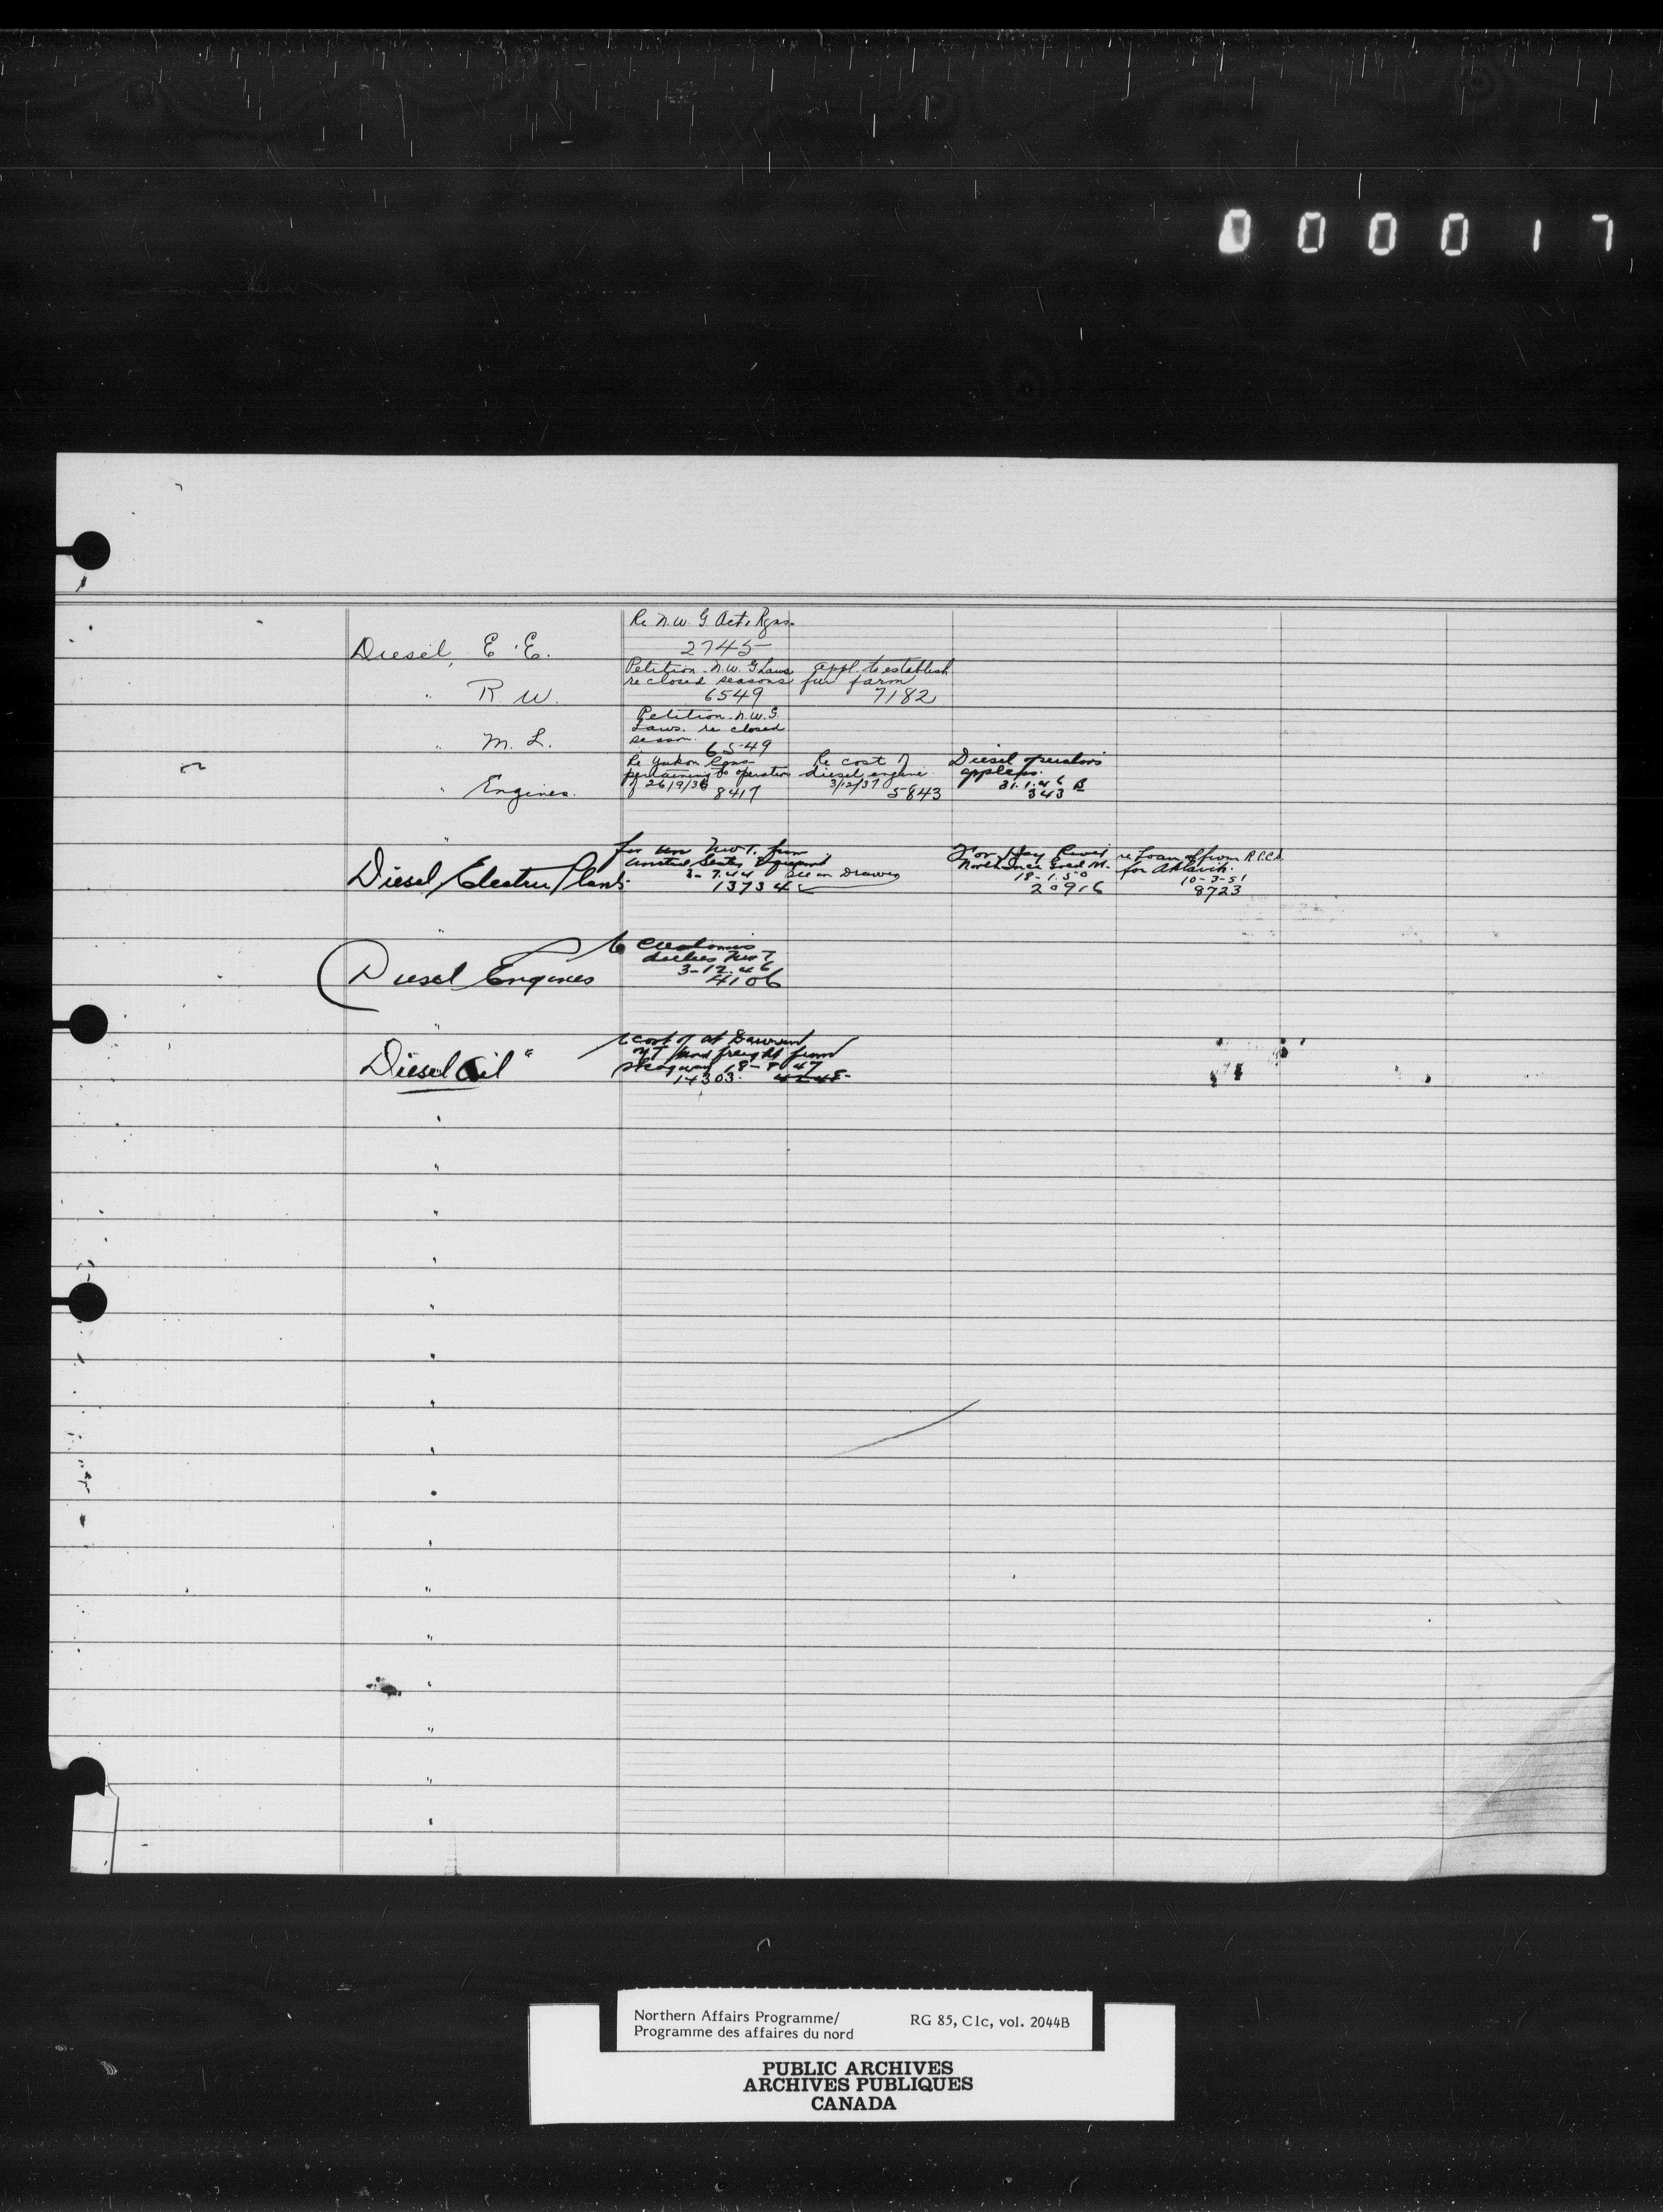 000017
Re N.W.G. Act & Rgns.
Diesel, E. E. 2745
Petition N.W.G Laws re closed seasons
appl. to establish fur farm
" R. W. 6549 7182
Petition N.W.G. Laws. re closed season.
" M. L. 6549
Re Yukon Rgns pertaining to operation of 26/9/36
Re cost of diesel engine 3/12/37
Diesel operators 31.1.46
" Engines. 8417 5843 343
for use NWT. from
3-7.44 See on Drawer
Diesel Electric Plants 13734
For Hay River
18-1.50
20916
re Loan of from
for Aklavik.
10-3-51
8723
re Customs
duties NWT
3-12.46
Diesel Engines 4106
re cost of at Dawson
YT and freight from
Skagway 18-8-47
Diesel Oil 14303.
Northern Affairs Programme/
Programme des affaires du nord
RG 85, C1c, vol. 2044B
PUBLIC ARCHIVES
ARCHIVES PUBLIQUES
CANADA